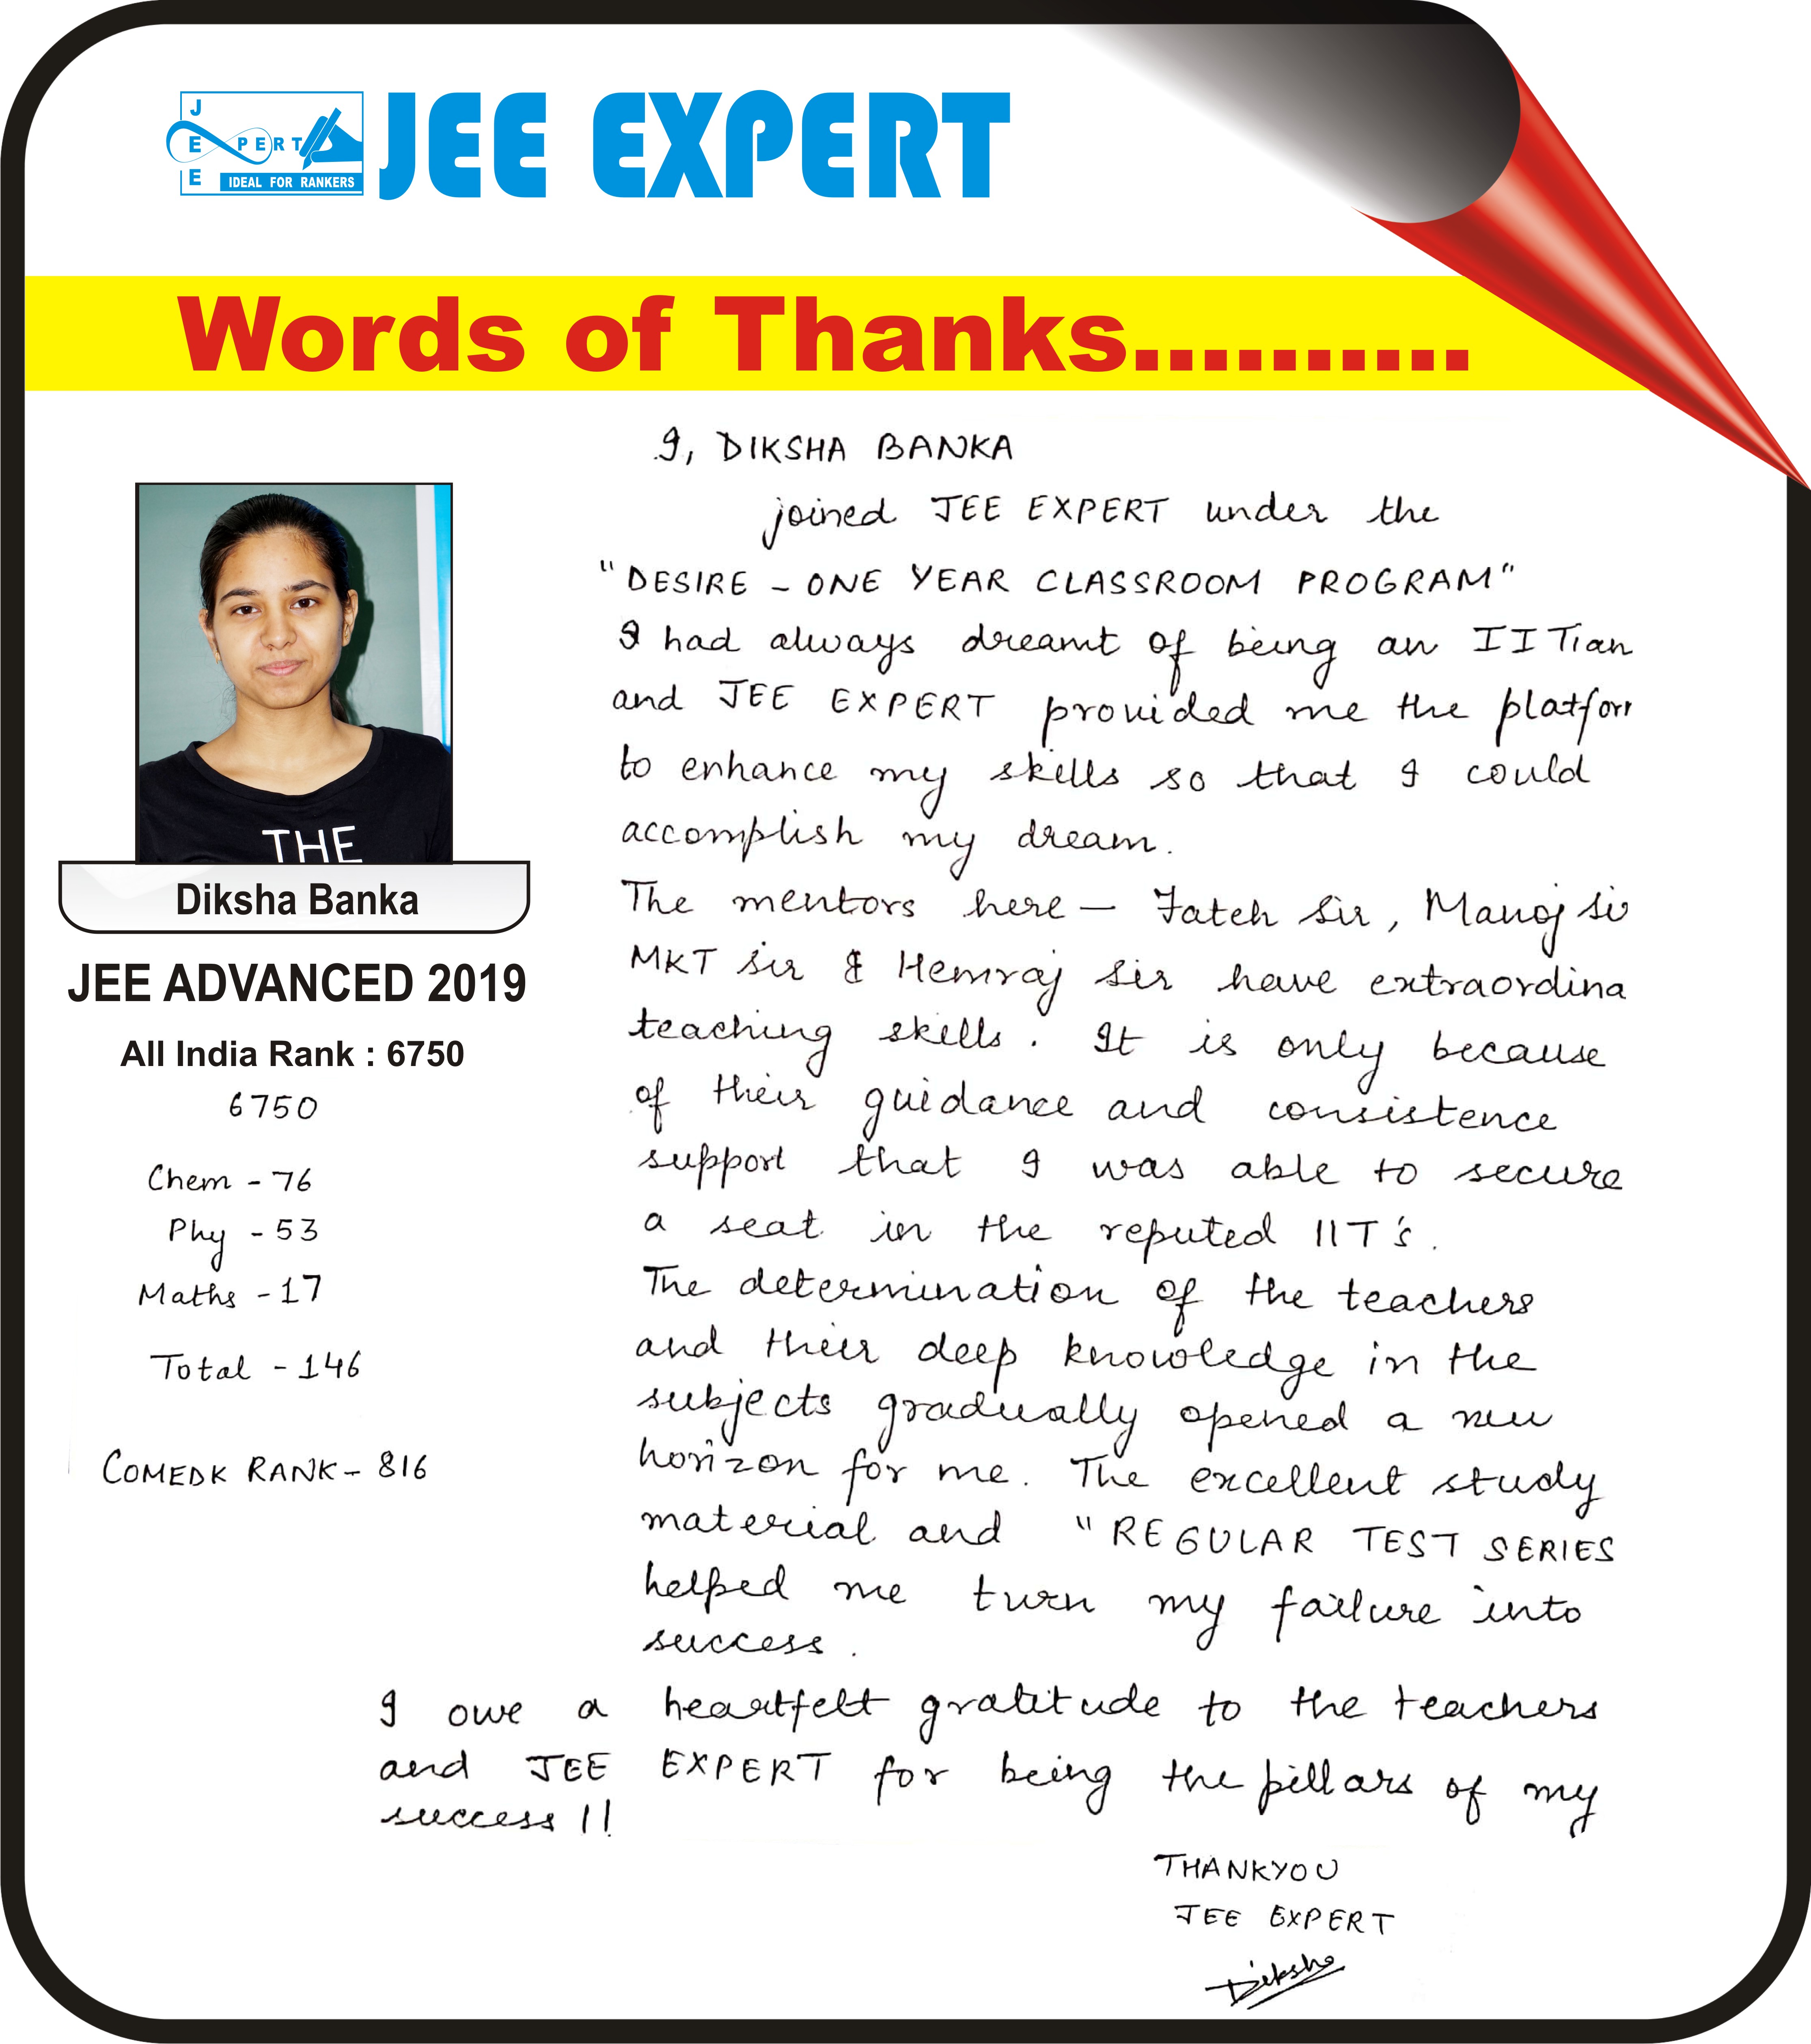 J
E XPERT
E IDEAL FOR RANKERS
JEE EXPERT
Words of Thanks..........
THE
Diksha Banka
JEE ADVANCED 2019
All India Rank : 6750
6750
Chem - 76
Phy - 53
Maths - 17
Total - 146
COMEDK RANK - 816
I, DIKSHA BANKA
joined JEE EXPERT under the
"DESIRE - ONE YEAR CLASSROOM PROGRAM"
I had always dreamt of being an IITian
and JEE EXPERT provided me the platforr
to enhance my skills so that I could
accomplish my dream.
The mentors here - Fateh Sir, Manoj Si
MKT Sir & Hemraj Sir have extraordina
teaching skills. It is only because
of their guidance and consistence
support that I was able to secure
a seat in the reputed IIT's.
The determination of the teachers
and their deep knowledge in the
subjects gradually opened a new
horizon for me. The excellent study
material and "REGULAR TEST SERIES
helped me turn my failure into
success.
I owe a heartfelt gratitude to the teachers
and JEE EXPERT for being the pillars of my
success !!
THANKYOU
JEE EXPERT
Diksha